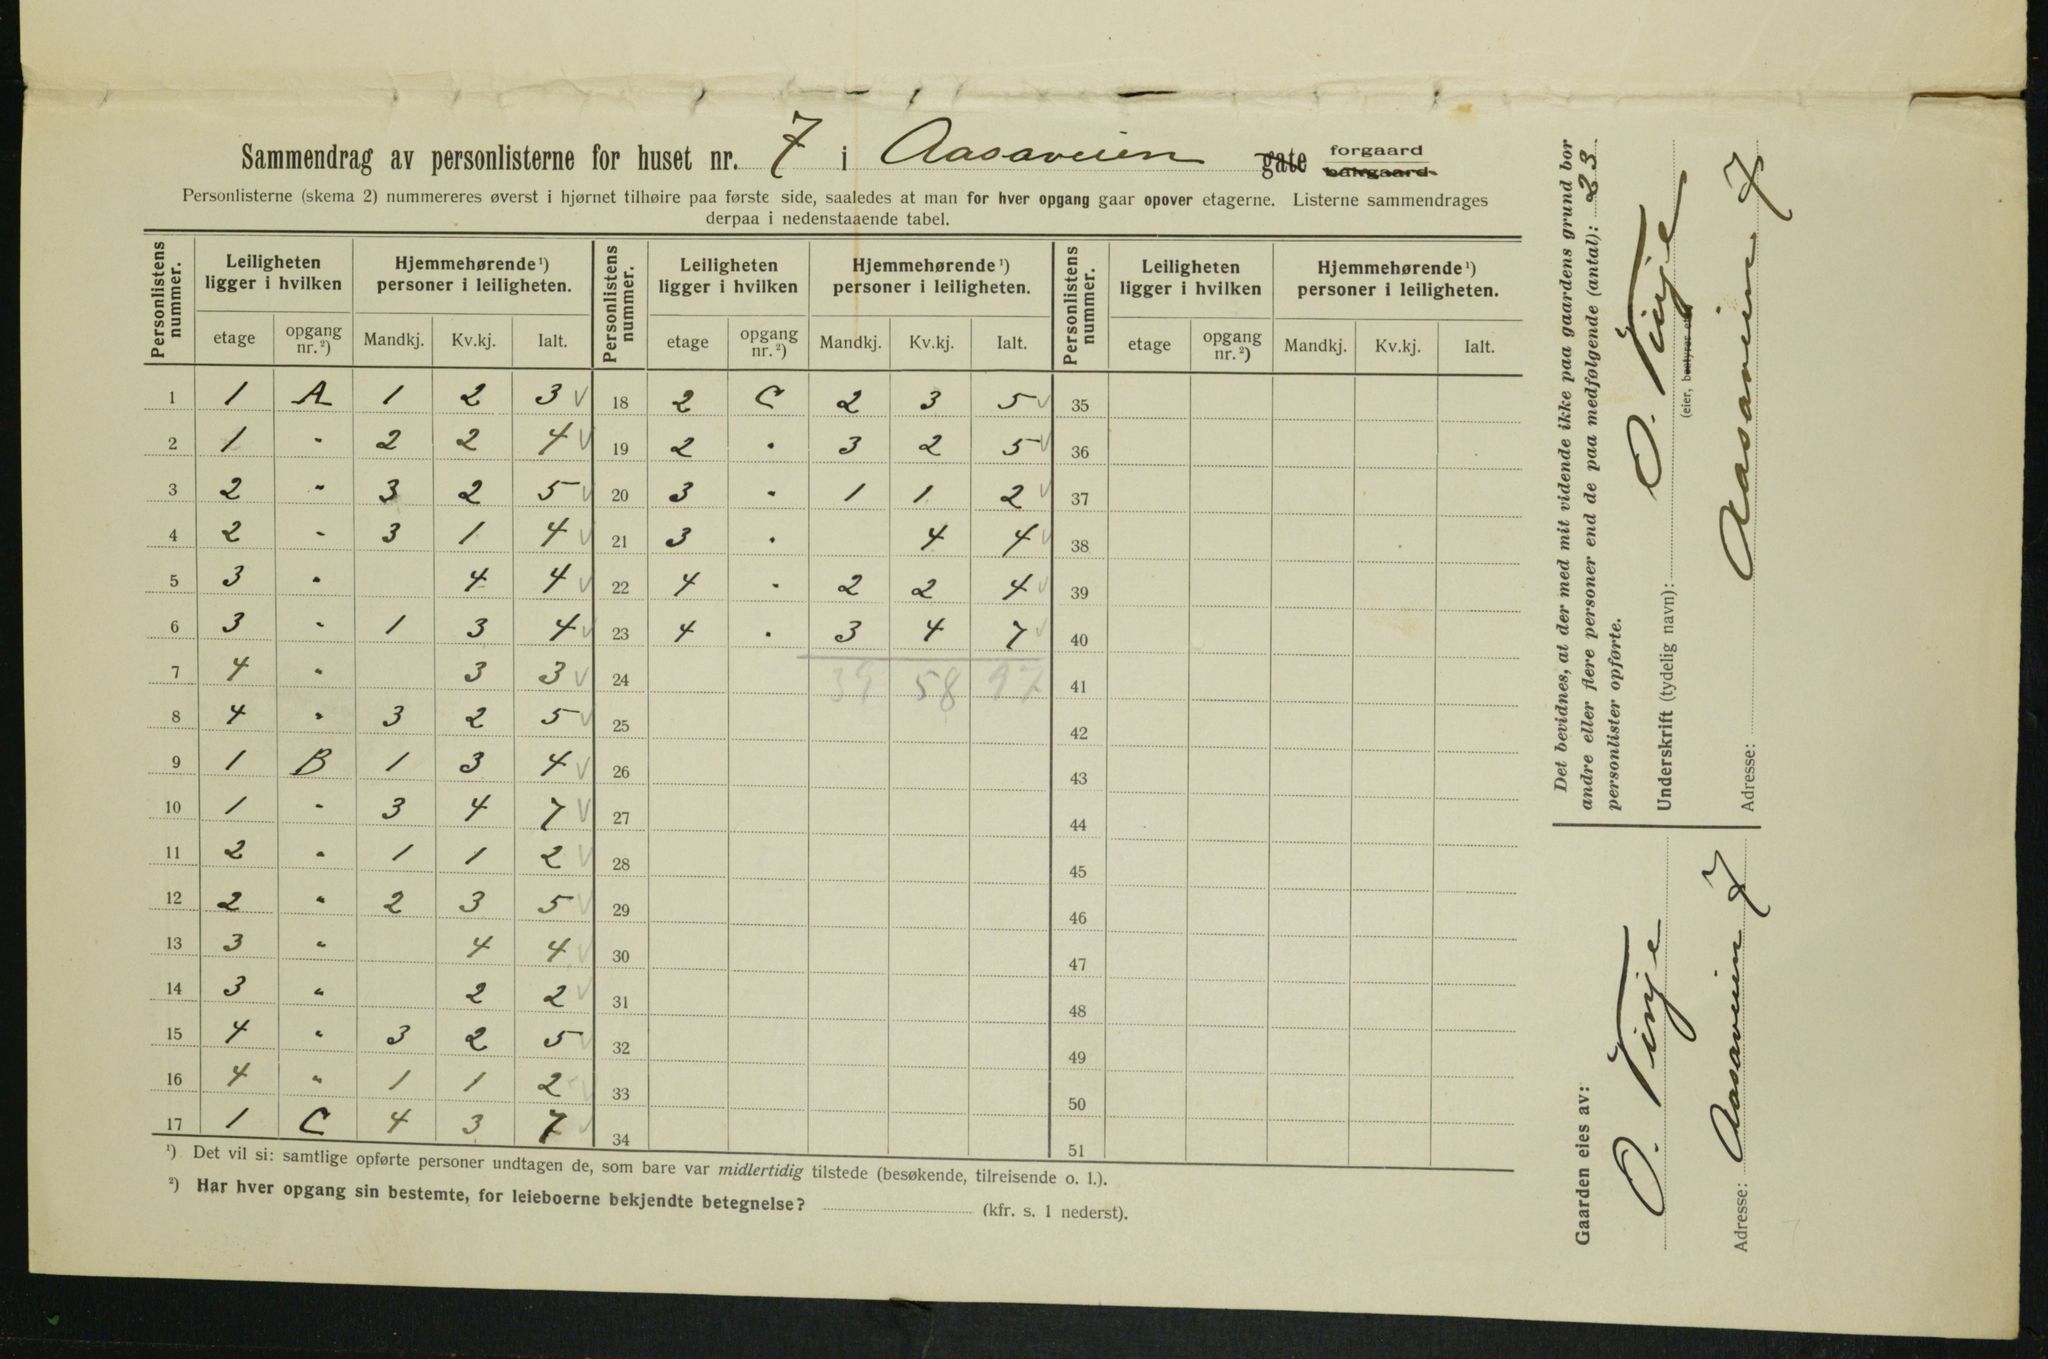 Sammendrag av personlisterne for huset nr. 7 i Aasaveien gate forgaard bakgaard.
Personlisterne (skema 2) nummereres øverst i hjørnet tilhøire paa første side, saaledes at man for hver opgang gaar opover etagerne. Listerne sammendrages
derpaa i nedenstaaende tabel.
Personlistens nummer. Leiligheten ligger i hvilken Hjemmehørende ¹) personer i leiligheten. Personlistens nummer. Leiligheten ligger i hvilken Hjemmehørende ¹) personer i leiligheten. Personlistens nummer. Leiligheten ligger i hvilken Hjemmehørende ¹) personer i leiligheten.
etage opgang nr. ²) Mandkj. Kv.kj. Ialt. etage opgang nr. ²) Mandkj. Kv.kj. Ialt. etage opgang nr. ²) Mandkj. Kv.kj. Ialt.
1 1 A 1 2 3 √ 18 2 C 2 3 5 √ 35
2 1 " 2 2 4 √ 19 2 " 3 2 5 √ 36
3 2 " 3 2 5 √ 20 3 " 1 1 2 √ 37
4 2 " 3 1 4 √ 21 3 " 4 4 √ 38
5 3 " 4 4 √ 22 4 " 2 2 4 √ 39
6 3 " 1 3 4 √ 23 4 " 3 4 7 √ 40
7 4 " 3 3 √ 24 39 58 97 41
8 4 " 3 2 5 √ 25 42
9 1 B 1 3 4 √ 26 43
10 1 " 3 4 7 √ 27 44
11 2 " 1 1 2 √ 28 45
12 2 " 2 3 5 √ 29 46
13 3 " 4 4 √ 30 47
14 3 " 2 2 √ 31 48
15 4 " 3 2 5 √ 32 49
16 4 " 1 1 2 √ 33 50
17 1 C 4 3 7 √ 34 51
¹) Det vil si: samtlige opførte personer undtagen de, som bare var midlertidig tilstede (besøkende, tilreisende o. l.).
²) Har hver opgang sin bestemte, for leieboerne bekjendte betegnelse? (kfr. s. 1 nederst).
Det bevidnes, at der med mit vidende ikke paa gaardens grund bor
andre eller flere personer end de paa medfølgende (antal): 23
personlister opførte.
Underskrift (tydelig navn): O. Tinje
(eier, bestyrer etc.)
Adresse: Aasaveien 7
Gaarden eies av: O. Tinje
Adresse: Aasaveien 7